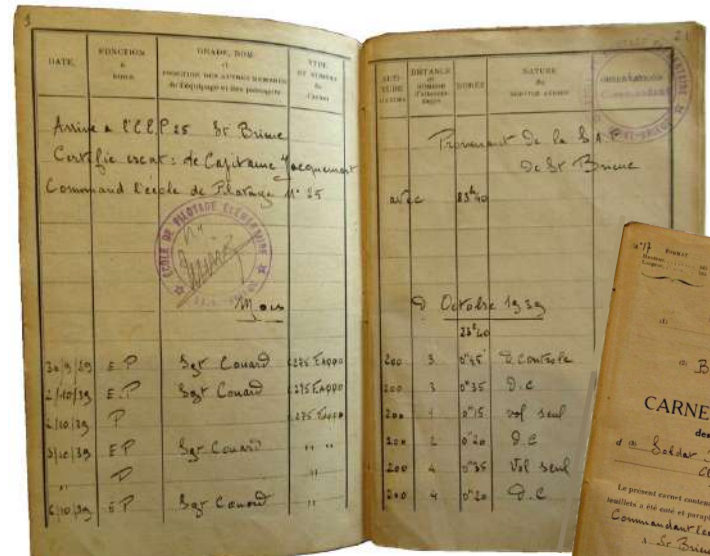 DATE.
FONCTION
à
BORD.
GRADE, NOM
et
FONCTION DES AUTRES MEMBRES
de l'équipage et des passagers
TYPE
ET NUMÉRO
de
l'avion
Arrivé a l'E.E.P 25 St Brieuc
Certifié exact: Le Capitaine Jacquemart
Command l'école de Pilotage N° 25
ECOLE DE PILOTAGE ELEMENTAIRE
Mois
30/9/39 E.P Sgt Couard
2/10/39 E.P Sgt Couard
2/10/39 P
3/10/39 E.P Sgt Couard " "
" P "
6/10/39 E.P Sgt Couard "
21
ALTI-
TUDE
DISTANCE
et
DURÉE
NATURE
du
SERVICE AÉRIEN
OBSERVATIONS
Provenant De la S.A.P.
De St Brieuc
avec 23h40
D Octobre 1939
23h40
200 3 0h45 D. Controle
200 3 0h35 D.C
200 4 0h15 vol seul
200 2 0h20 D.C
200 4 0h35 Vol seul
200 4 0h20 D.C
N° 17 FORMAT
CARNE
des
Soldat
Le présent carnet conten
feuillets a été coté et paraph
Commandant l'éc
A St Brieu